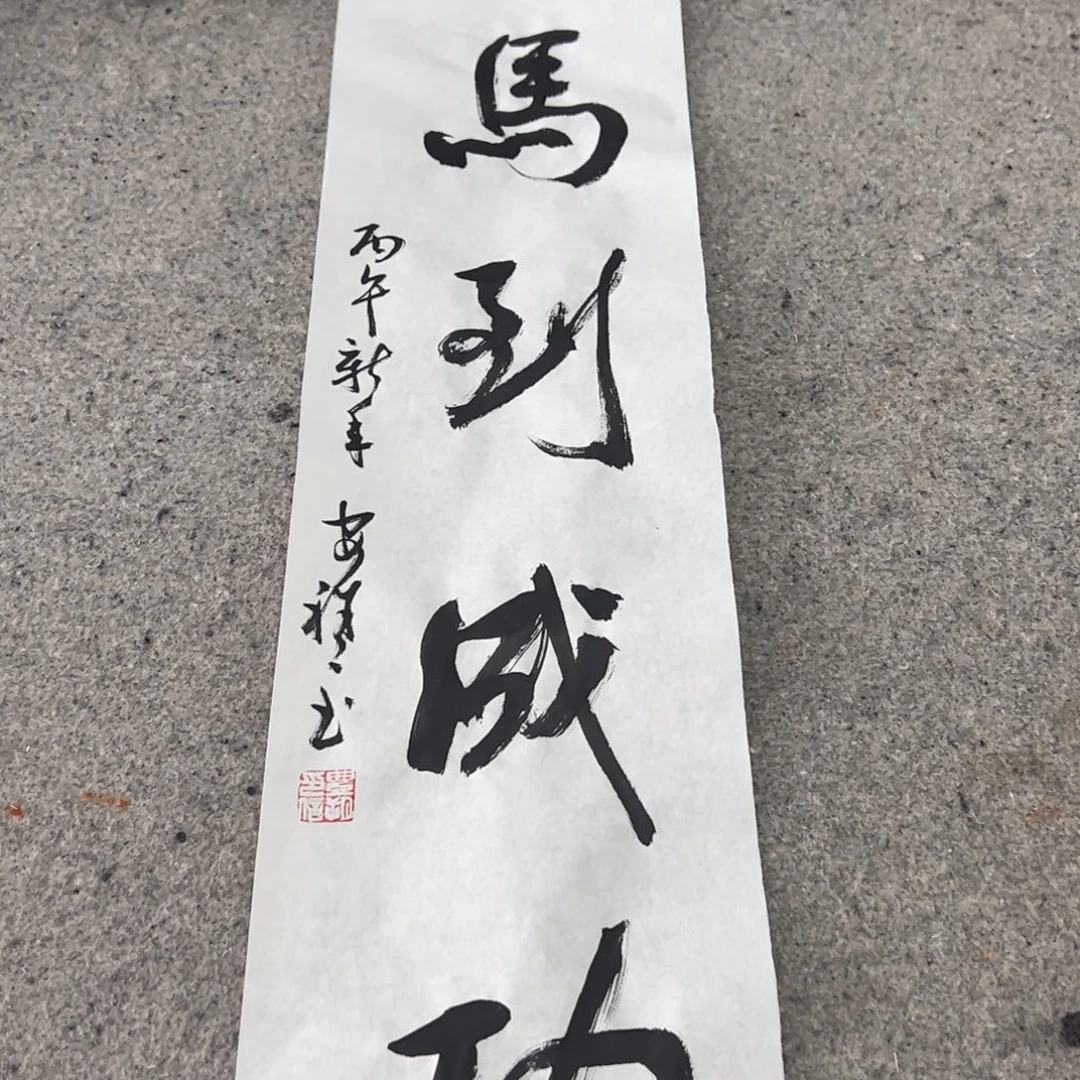 馬到成功
丙午新年 安祥書